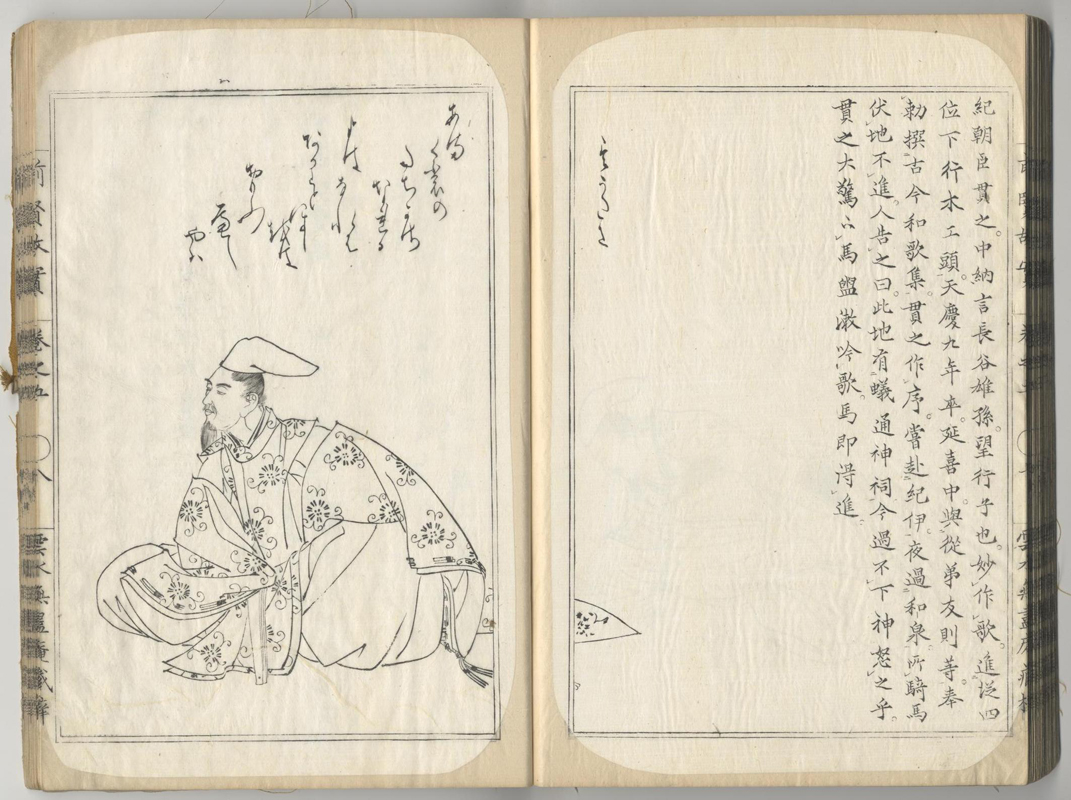 紀朝臣貫之。中納言長谷雄孫。望行子也。妙作歌。進從四
位下行木工頭。天慶九年卒。延喜中與從弟友則等奉
勅撰古今和歌集。貫之作序。嘗赴紀伊。夜過和泉。所騎馬
伏地不進。人告之曰。此地有蟻通神祠今過不下神怒之乎。
貫之大驚下馬盥漱吟歌。馬即得進
あま
く裳の
たちかさ
なれる
よは
なれは
ありと
ほし
をは
おもふ
へし
やは
前賢故實 卷之五 八 雲水無盡